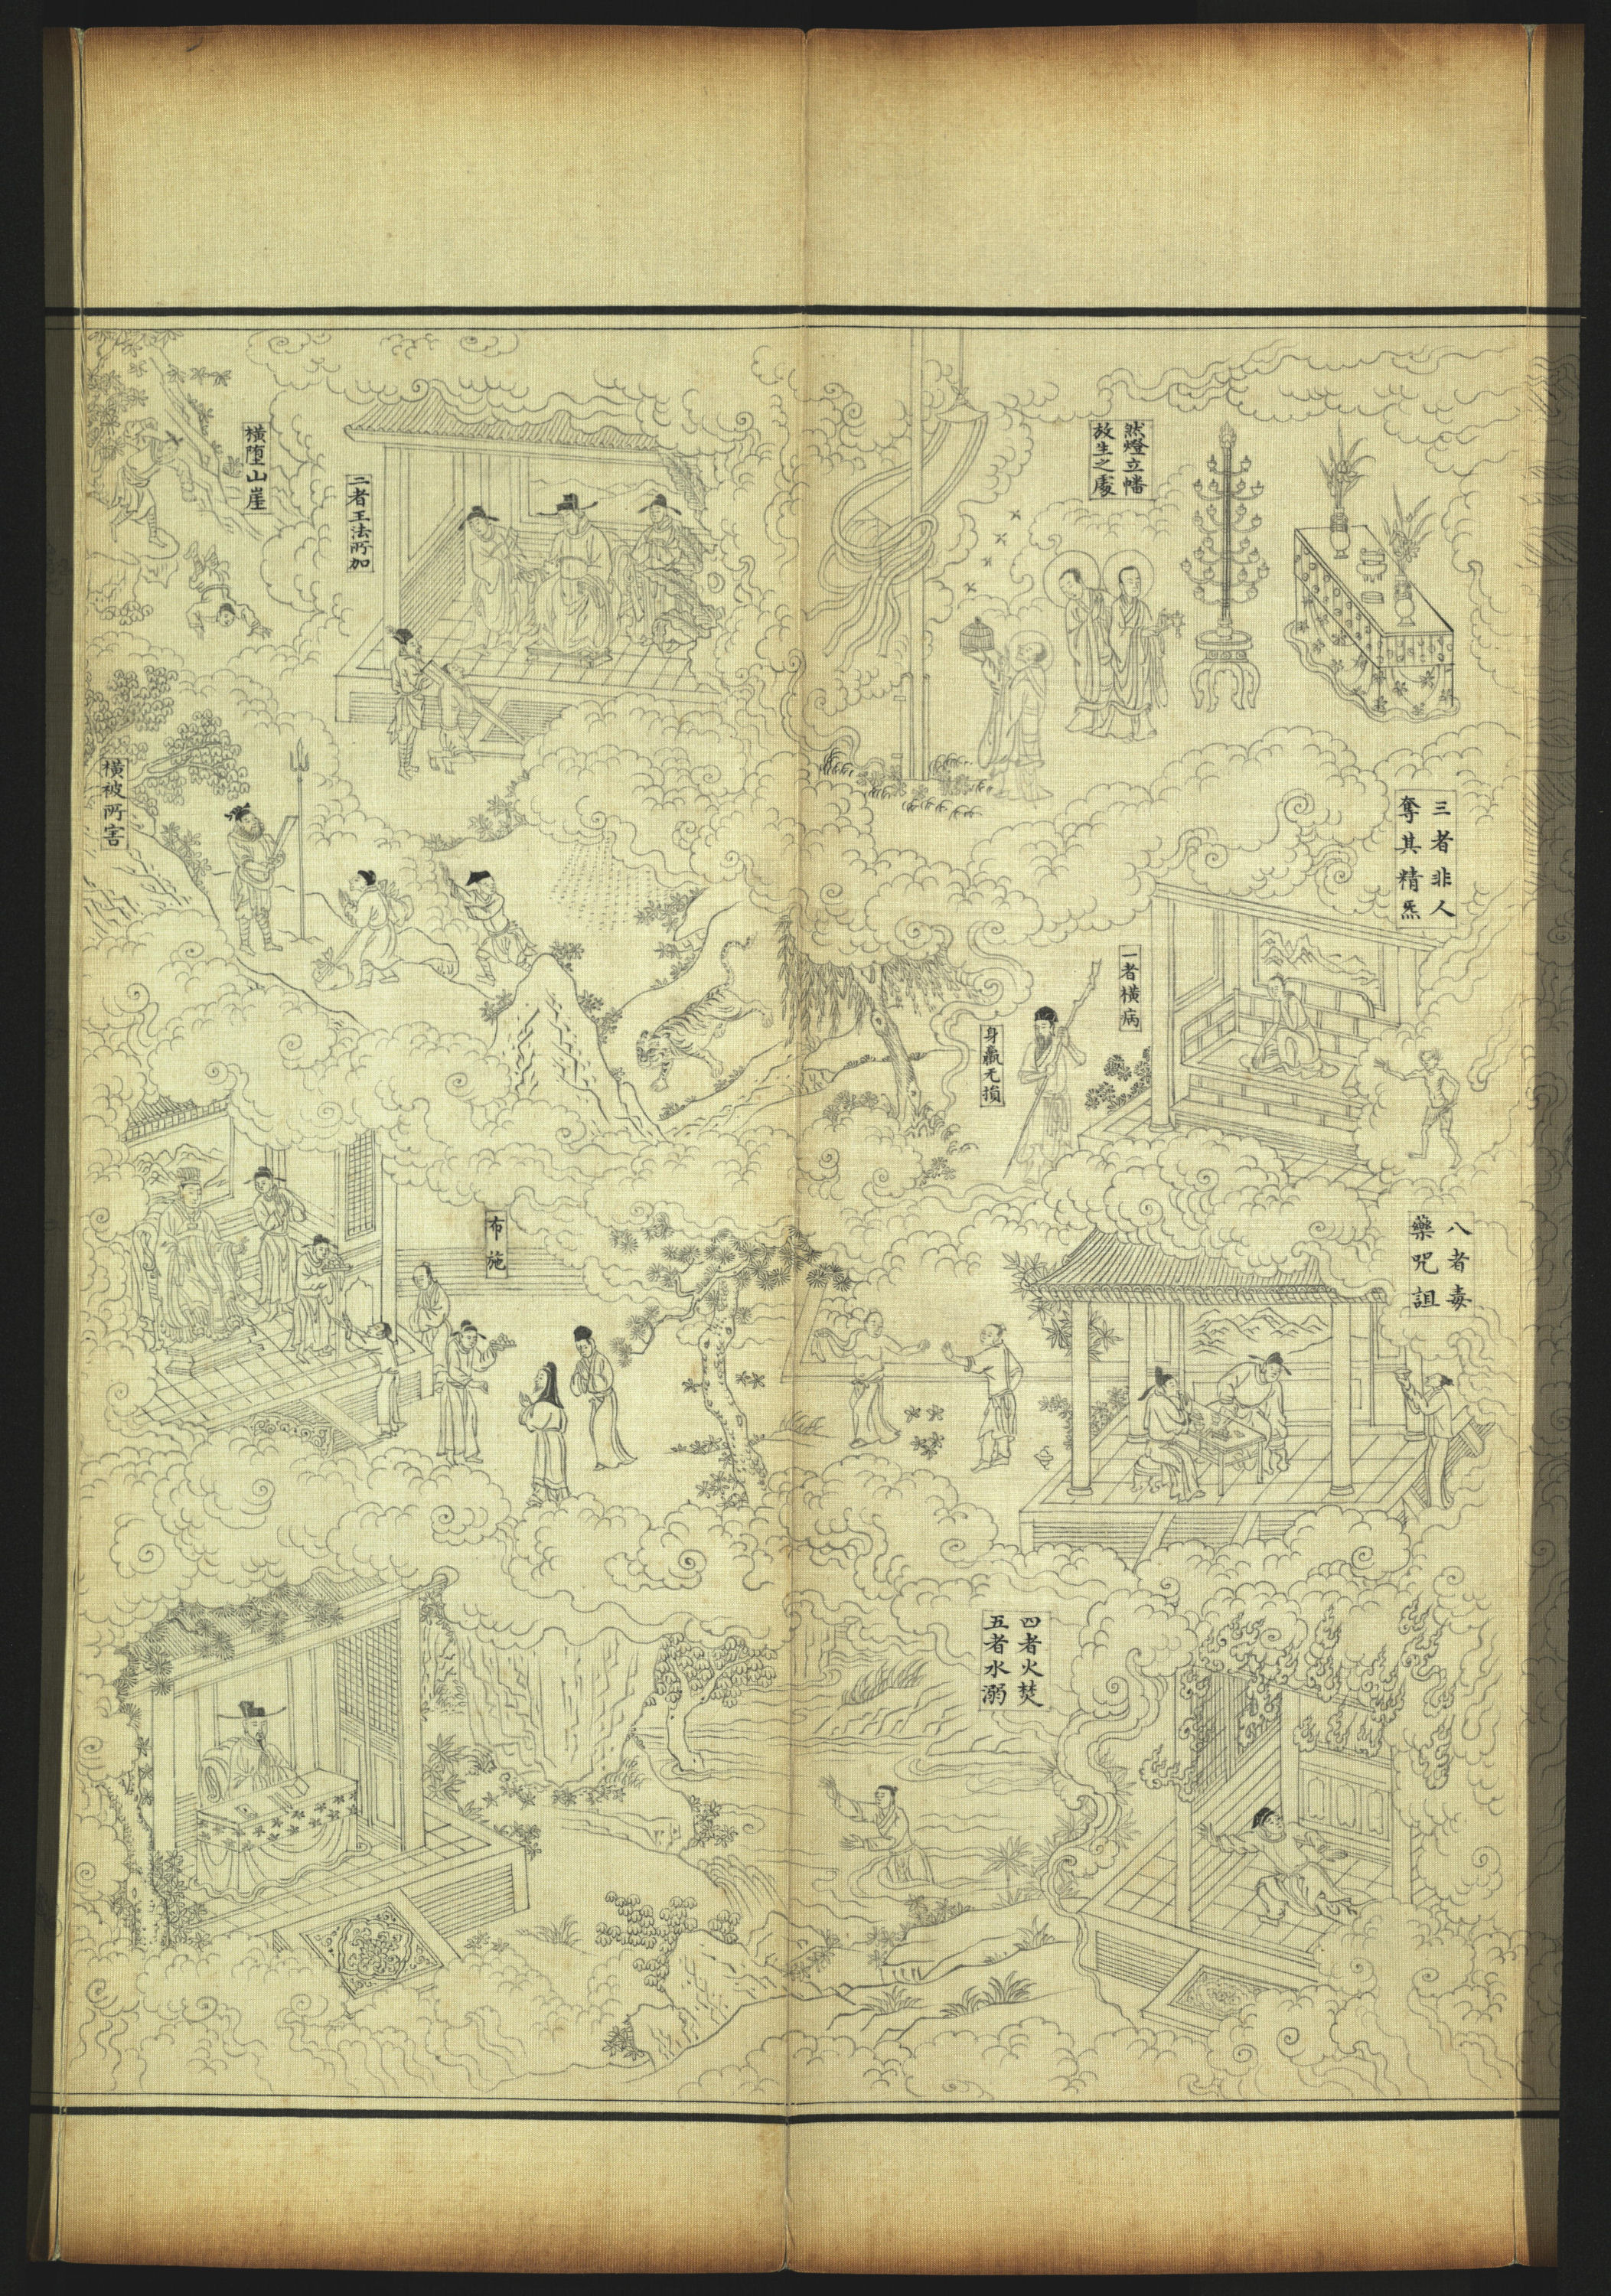 然燈立幡
放生之處
三者非人
奪其精炁
一者橫病
身羸无損
八者毒
藥呪詛
四者火焚
五者水溺
二者王法所加
橫墮山崖
橫被所害
布施